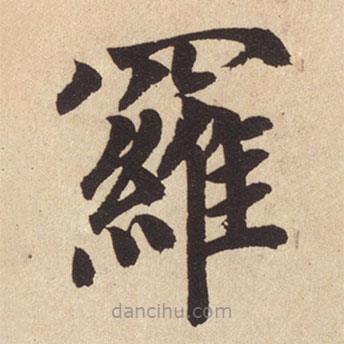 羅
dancihu.com